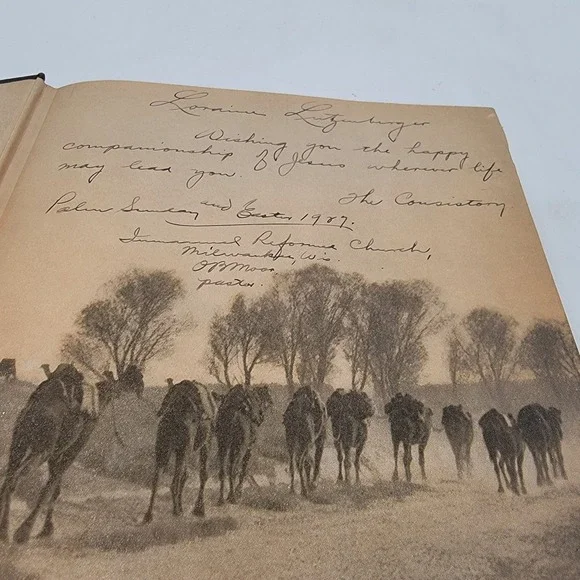 Lorraine Lutzenburger
Wishing you the happy
companionship of Jesus wherever life
may lead you.
The Consistory.
Palm Sunday and Easter 1927.
Immanuel Reformed Church,
Milwaukee, Wis.
pastor.